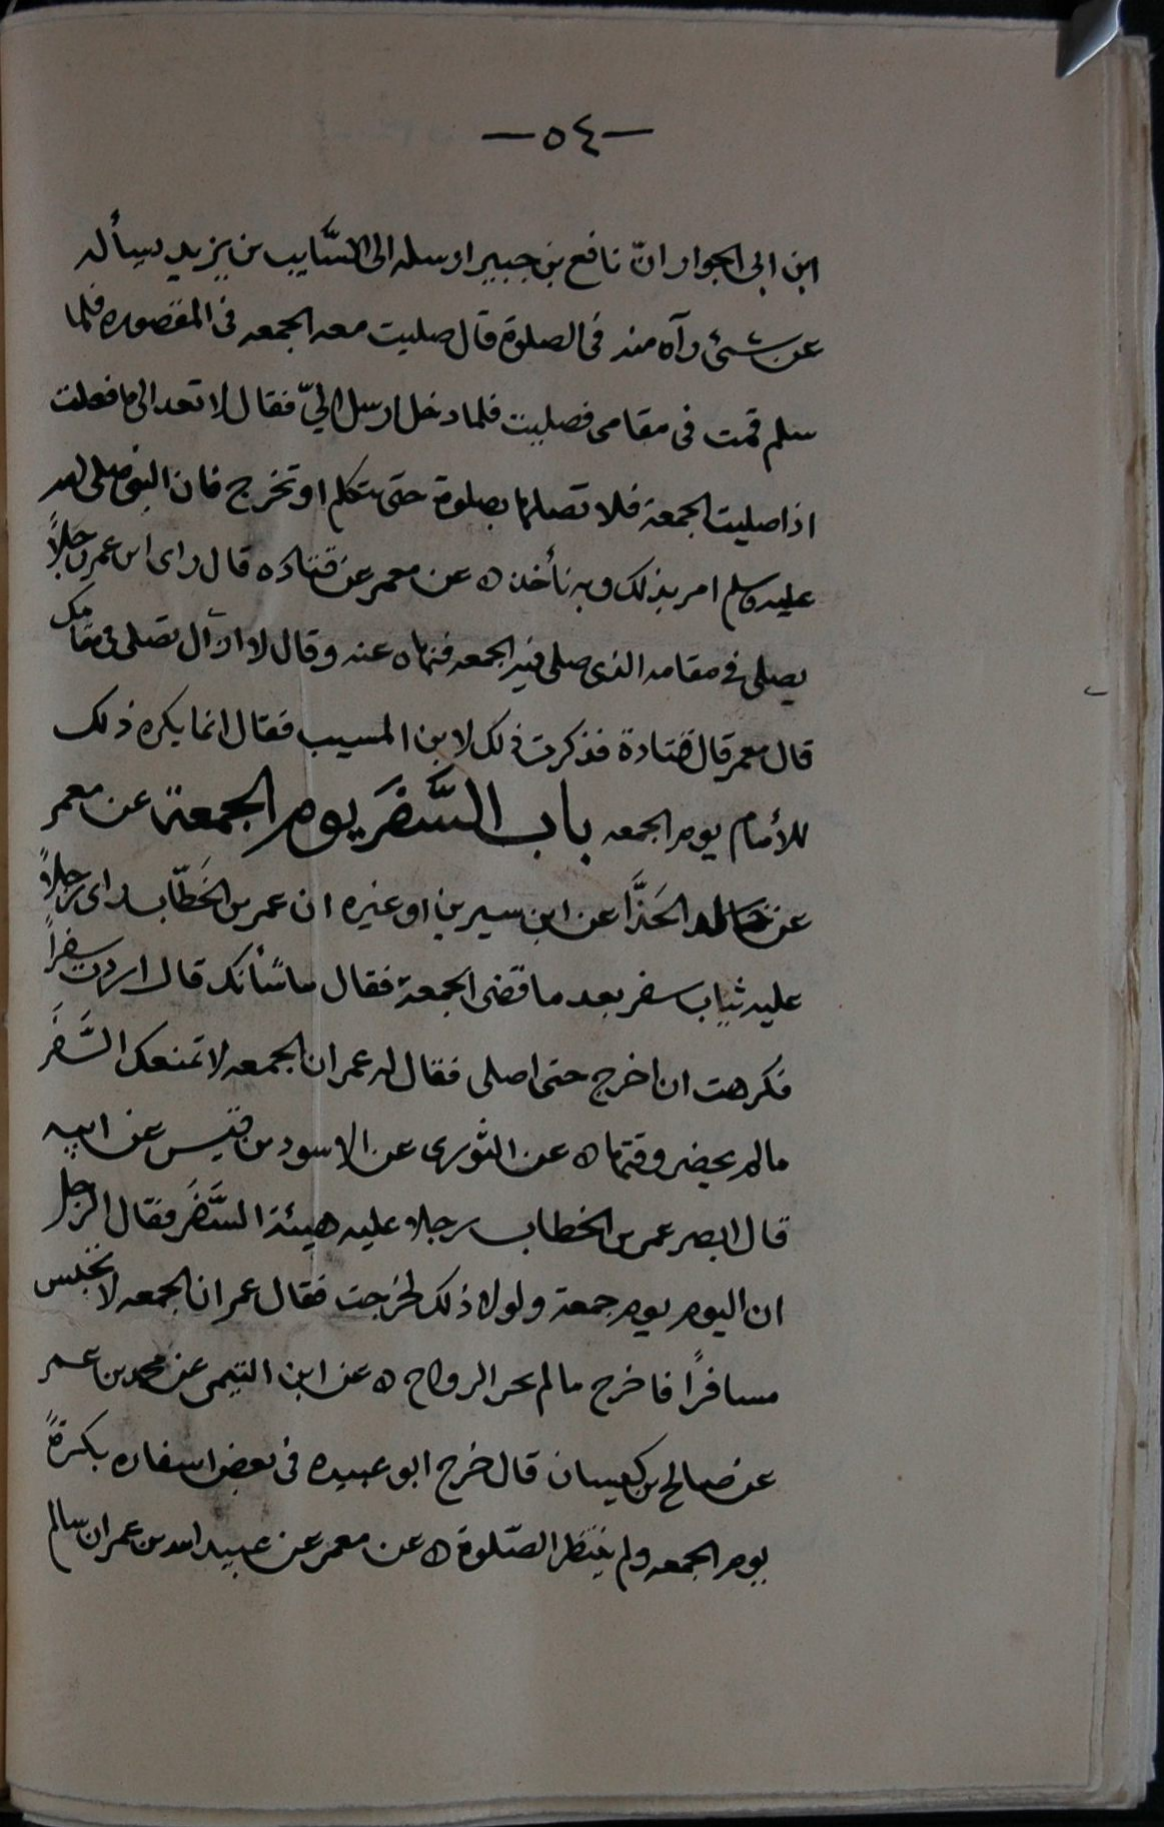 —٥٤—
ابن ابى الجوار انّ نافع بن جبير ارسله الى السَّايب بن يزيد يسأله
عن شئ رآه منه فى الصلوة قال صليت معه الجمعه فى المقصوره فلما
سلم قمت فى مقامى فصليت فلما دخل ارسل اليّ فقال لا تعد الى ما فعلت
اذا صليت الجمعة فلا تصلها بصلوة حتى تتكلم او تخرج فان النبى صلى الله
عليه وسلم امر بذلك وبه نأخذ ه عن معمر عن قتاده قال راى ابن عمر رجلاً
يصلى في مقامه الذى صلى فيه الجمعه فنهاه عنه وقال لا اراك تصلى فى مقامك
قال معمر قال قتادة فذكرت ذلك لابن المسيب فقال انما يكره ذلك
للأمام يوم الجمعه باب السَّفَر يوم الجمعة عن معمر
عن خالد الحَذَّا عن ابن سيرين او غيره ان عمر بن الخَطّاب راى رجلاً
عليه ثياب سفر بعد ما قضى الجمعة فقال ما شأنك قال اردت سفراً
فكرهت ان اخرج حتى اصلى فقال له عمر ان الجمعه لا تمنعك السَّفَر
مالم يحضر وقتها ه عن الثورى عن الاسود بن قيس عن ابيه
قال ابصر عمر بن الخطاب رجلا عليه هيئة السَّفَر فقال الرجل
ان اليوم يوم جمعة ولولا ذلك لخرجت فقال عمر ان الجمعه لا تحبس
مسافرًا فاخرج مالم يحر الرواح ه عن ابن التيمى عن محمد بن عمر
عن صالح بن كيسان قال خرج ابو عبيده فى بعض اسفاره بكرةً
يوم الجمعه ولم ينتظر الصّلوة ه عن معمر عن عبيد الله بن عمر ان سالم